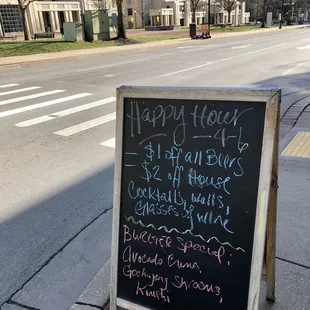 Happy Hour
4-6
$1 off all Beers
$2 off House
Cocktails, wells,
Glasses of wine
Burger Special:
Avocado Crema,
Gochujang Shrooms,
Kimchi